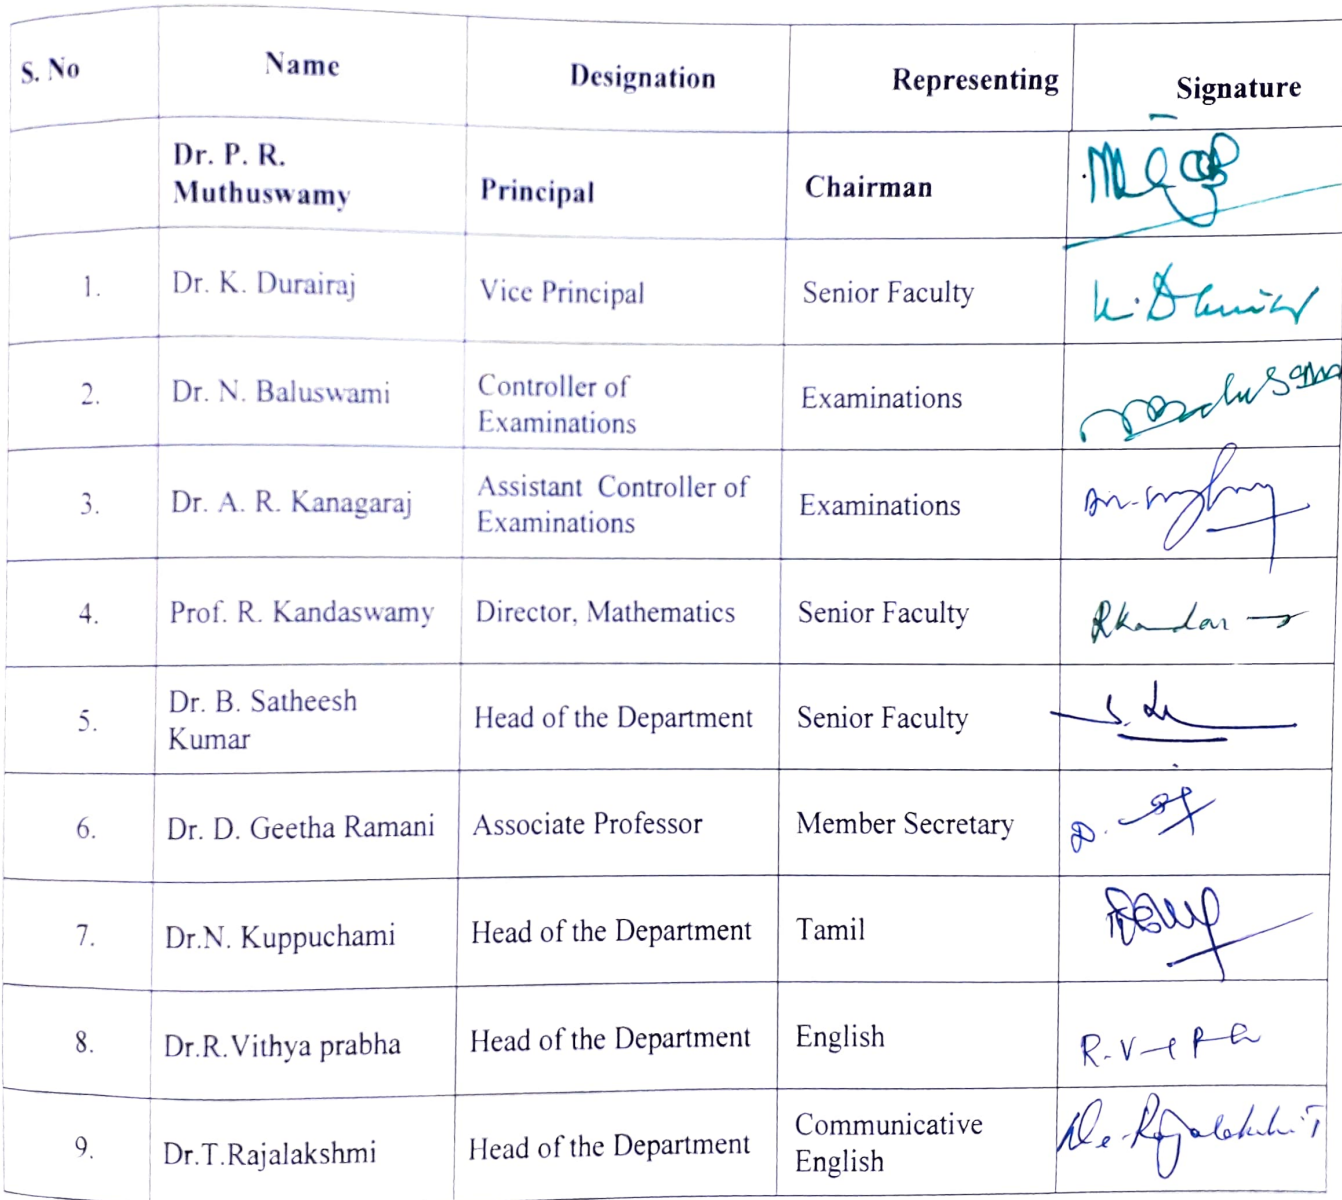 S. No Name Designation Representing Signature
Dr. P. R.
Muthuswamy Principal Chairman
1. Dr. K. Durairaj Vice Principal Senior Faculty
2. Dr. N. Baluswami Controller of
Examinations Examinations
3. Dr. A. R. Kanagaraj Assistant Controller of
Examinations Examinations
4. Prof. R. Kandaswamy Director, Mathematics Senior Faculty
5. Dr. B. Satheesh
Kumar Head of the Department Senior Faculty
6. Dr. D. Geetha Ramani Associate Professor Member Secretary
7. Dr.N. Kuppuchami Head of the Department Tamil
8. Dr.R.Vithya prabha Head of the Department English
9. Dr.T.Rajalakshmi Head of the Department Communicative
English